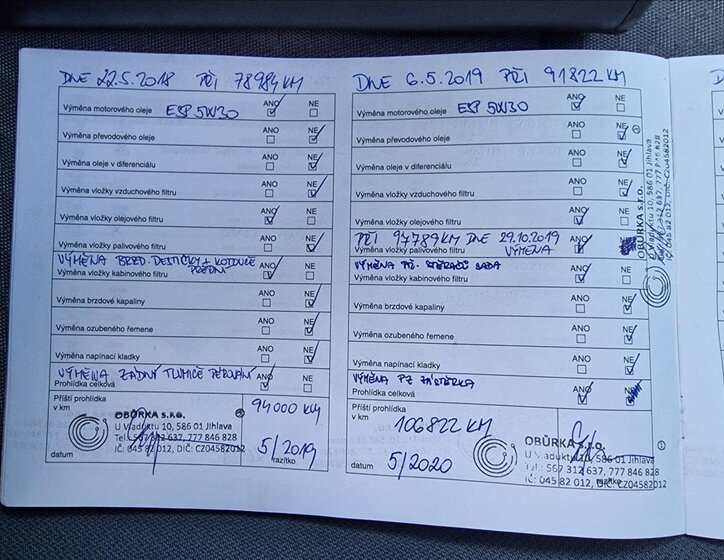 DNE 22.5.2018 PŘI 78984 KM
ANO NE
Výměna motorového oleje ESP 5W30
ANO NE
Výměna převodového oleje
ANO NE
Výměna oleje v diferenciálu
ANO NE
Výměna vložky vzduchového filtru
ANO NE
Výměna vložky olejového filtru
ANO NE
Výměna vložky palivového filtru
VÝMĚNA BRZD. DESTIČKY + KOTOUČE
PŘEDNÍ
ANO NE
Výměna vložky kabinového filtru
ANO NE
Výměna brzdové kapaliny
ANO NE
Výměna ozubeného řemene
ANO NE
Výměna napínací kladky
VÝMĚNA ZADNÍ TLUMIČE PÉROVÁNÍ
ANO NE
Prohlídka celková
Příští prohlídka
v km
94000 KM
OBŮRKA s.r.o.
U Viaduktu 10, 586 01 Jihlava
Tel.: 567 312 637, 777 846 828
IČ: 045 82 012, DIČ: CZ04582012
datum
5/2019
razítko
DNE 6.5.2019 PŘI 91822 KM
ANO NE
Výměna motorového oleje ESP 5W30
ANO NE
Výměna převodového oleje
ANO NE
Výměna oleje v diferenciálu
ANO NE
Výměna vložky vzduchového filtru
ANO NE
Výměna vložky olejového filtru
PŘI 97789 KM DNE 29.10.2019
ANO
Výměna vložky palivového filtru VÝMĚNA
VÝMĚNA PŘ. STĚRAČŮ SADA
ANO NE
Výměna vložky kabinového filtru
ANO NE
Výměna brzdové kapaliny
ANO NE
Výměna ozubeného řemene
ANO NE
Výměna napínací kladky
VÝMĚNA PZ ZÁSTĚRKA
ANO NE
Prohlídka celková
Příští prohlídka
v km
106822 KM
datum
5/2020
OBŮRKA s.r.o.
U Viaduktu 10, 586 01 Jihlava
Tel.: 567 312 637, 777 846 828
IČ: 045 82 012, DIČ: CZ04582012
razítko
OBŮRKA s.r.o.
U Viaduktu 10, 586 01 Jihlava
Tel.: 567 312 637, 777 846 828
IČ: 045 82 012, DIČ: CZ04582012